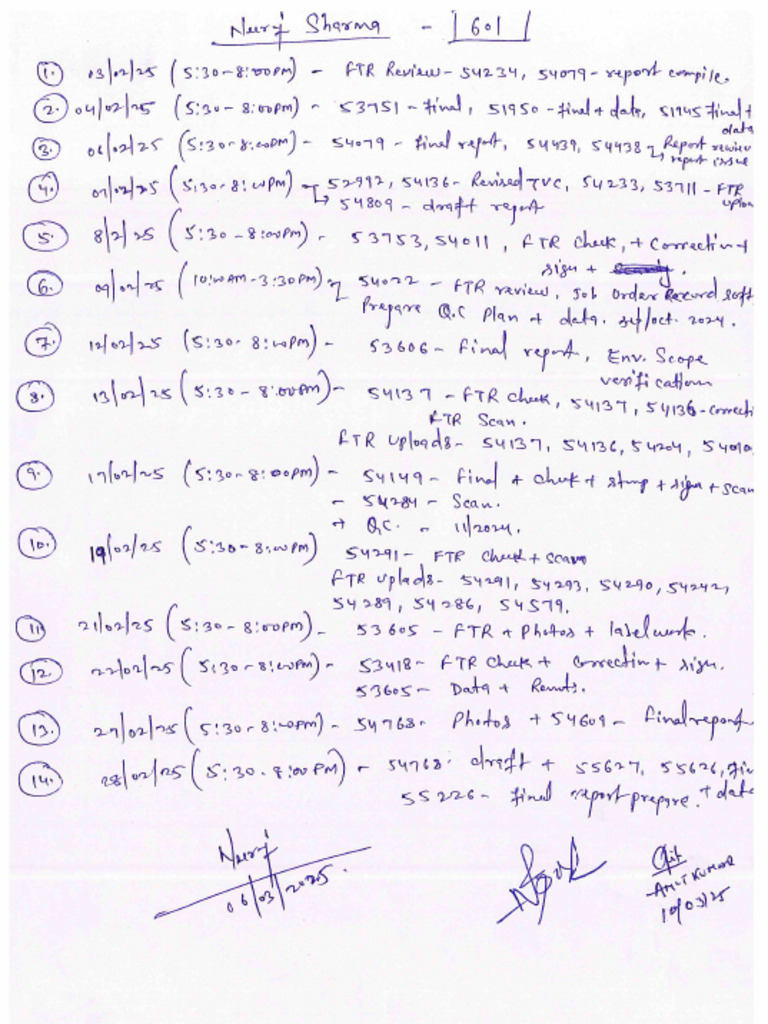 Neeraj Sharma - 1601
1. 03/02/25 (5:30-8:00PM) - FTR Review - 54234, 54079 - report compile.
2. 04/02/25 (5:30-8:00PM) - 53751 - final, 51950 - final + data, 51945 final + data
3. 06/02/25 (5:30-8:00PM) - 54079 - final report, 54439, 54438 Report review
report issue
4. 07/02/25 (5:30-8:00PM) - 52992, 54136 - Revised TVC, 54233, 53711 - FTR
54809 - draft report
5. 8/2/25 (5:30-8:00PM) - 53753, 54011, FTR Check, + Correction +
sign +
6. 09/02/25 (10:00AM-3:30PM) 54022 - FTR review, Job Order Record soft
Prepare Q.C Plan + data. sep/oct. 2024.
7. 12/02/25 (5:30-8:00PM) - 53606 - final report, Env. Scope
verification
8. 13/02/25 (5:30-8:00PM) - 54137 - FTR Check, 54137, 54136 - correcti
FTR Scan.
FTR Uploads - 54137, 54136, 54204, 54010,
9. 17/02/25 (5:30-8:00PM) - 54149 - final + check + stmp + sign + scan
- 54284 - Scan.
+ Q.C. - 11/2024.
10. 19/02/25 (5:30-8:00PM) 54291 - FTR check + scan
FTR Uplads - 54291, 54293, 54290, 54242,
54289, 54286, 54579.
11 21/02/25 (5:30-8:00PM) - 53605 - FTR + Photos + label work.
12. 22/02/25 (5:30-8:00PM) - 53418 - FTR Check + Correction + sign.
53605 - Data +
13. 27/02/25 (5:30-8:00PM) - 54768 - Photos + 54609 - final report
14. 28/02/25 (5:30-8:00PM) - 54768 - draft + 55627, 55626,
55226 - final report prepare. + data
Neeraj
06/03/2025.
AMIT KUMAR
10/03/25